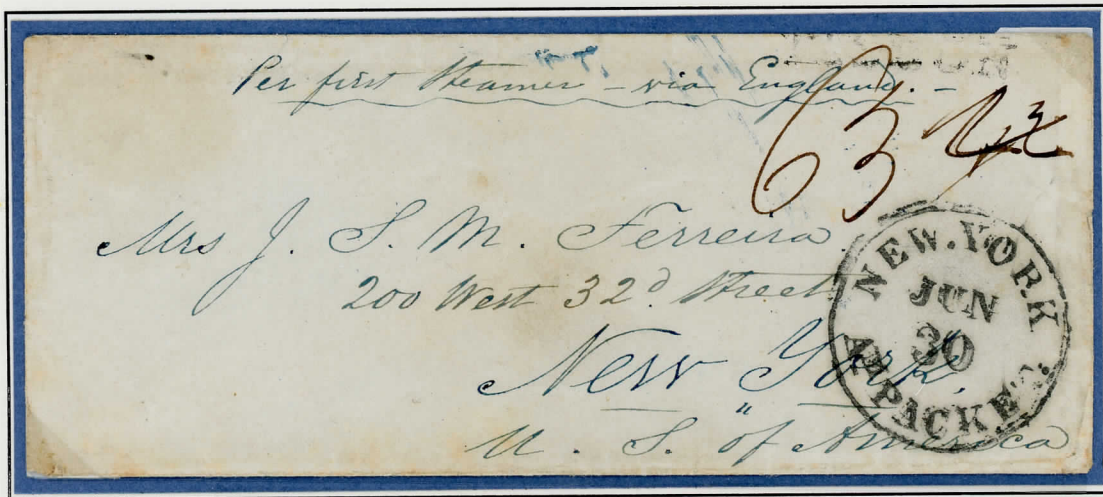 Per first Steamer - via England. -
63
Mrs J. S. M. Ferreira
200 West 32d Street
New York,
U. S. of America
NEW.YORK
JUN
30
AM PACKET.